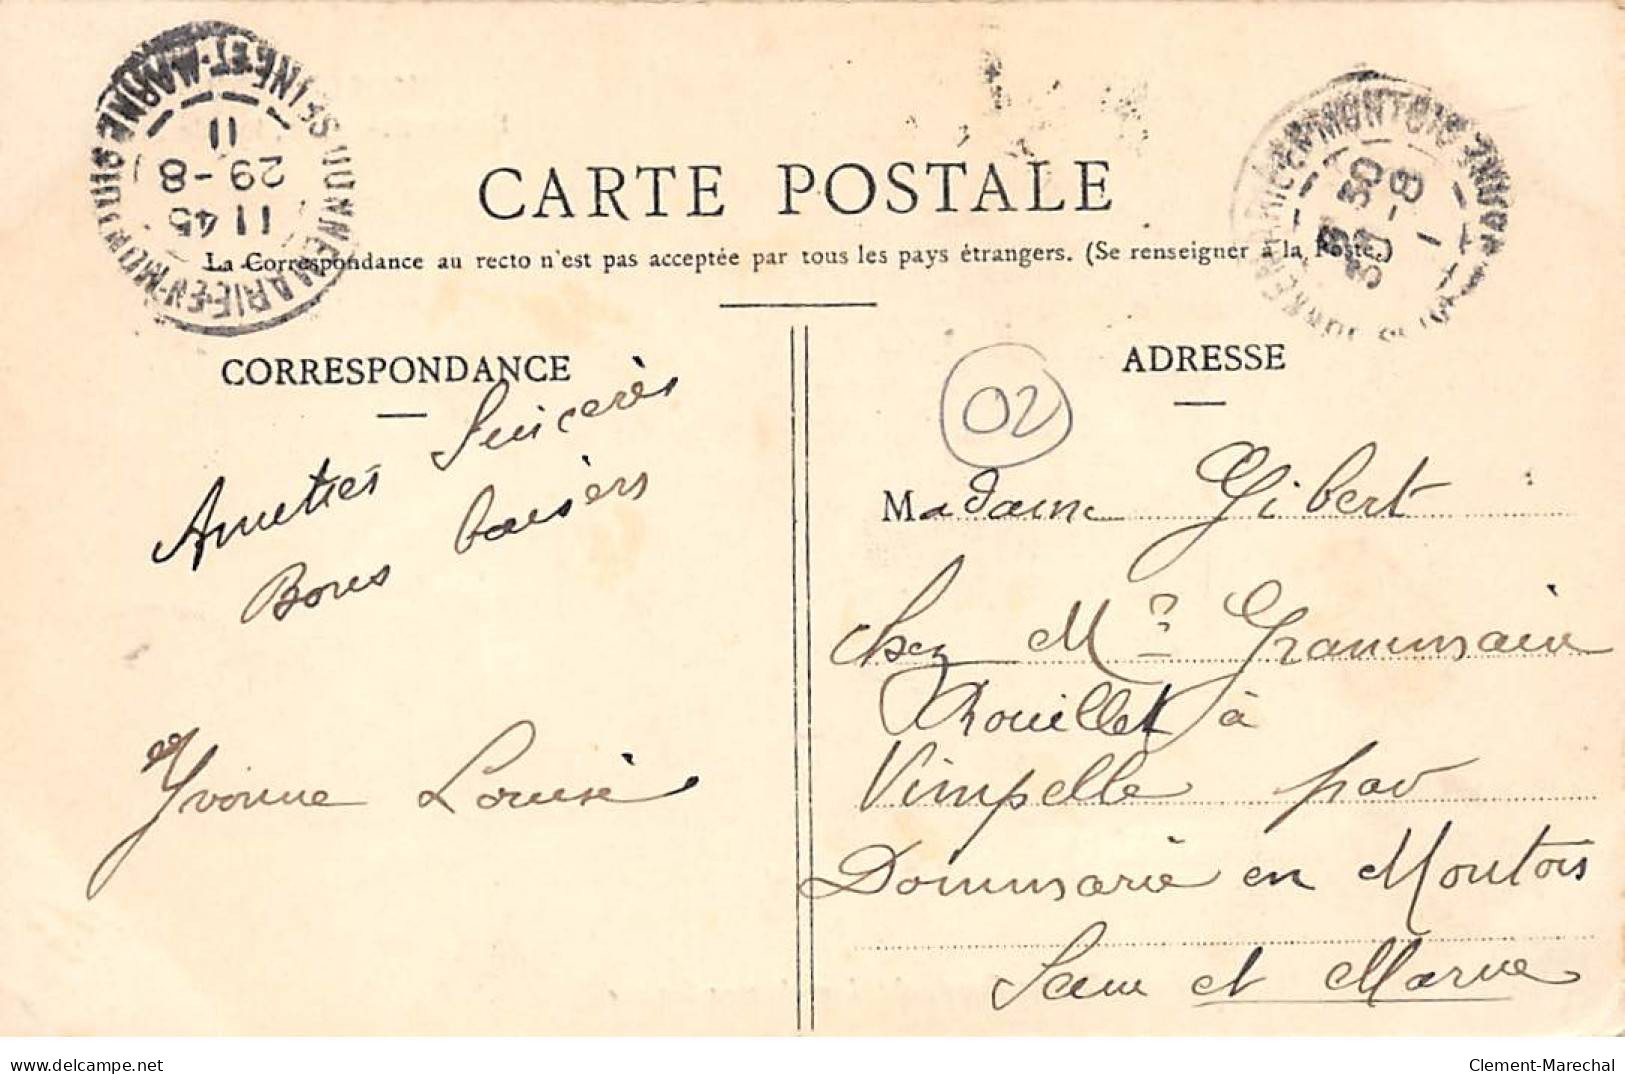 CARTE POSTALE
La Correspondance au recto n'est pas acceptée par tous les pays étrangers. (Se renseigner à la Poste.)
DONNEMARIE-EN-MONTOIS
SEINE-ET-MARNE
11 45
29-8
11
EN-MONTOIS
30
30-8
CORRESPONDANCE
Amitiés Sincères
Bons baisers
Yvonne Louise
ADRESSE
02
Madame Gibert
chez Mr Grammaire
Rouillet à
Vimpelle par
Donnmarie en Montois
Seine et Marne
delcampe.net
Clement-Marechal